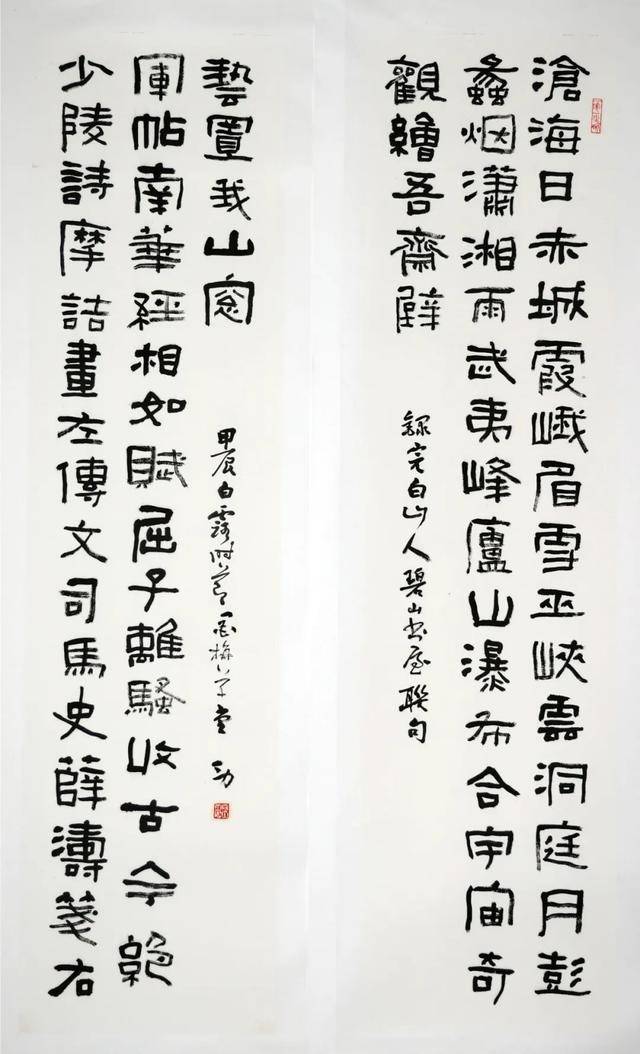 滄海日赤城霞峨眉雪巫峽雲洞庭月彭
蠡烟瀟湘雨武夷峰廬山瀑布合宇宙奇
觀繪吾齋壁
錄完白山人碧山書屋聯句
少陵詩摩詰畫左傳文司馬史薛濤箋右
軍帖南華經相如賦屈子離騷收古今絕
藝置我山窓
甲辰白露時節 梅 草堂